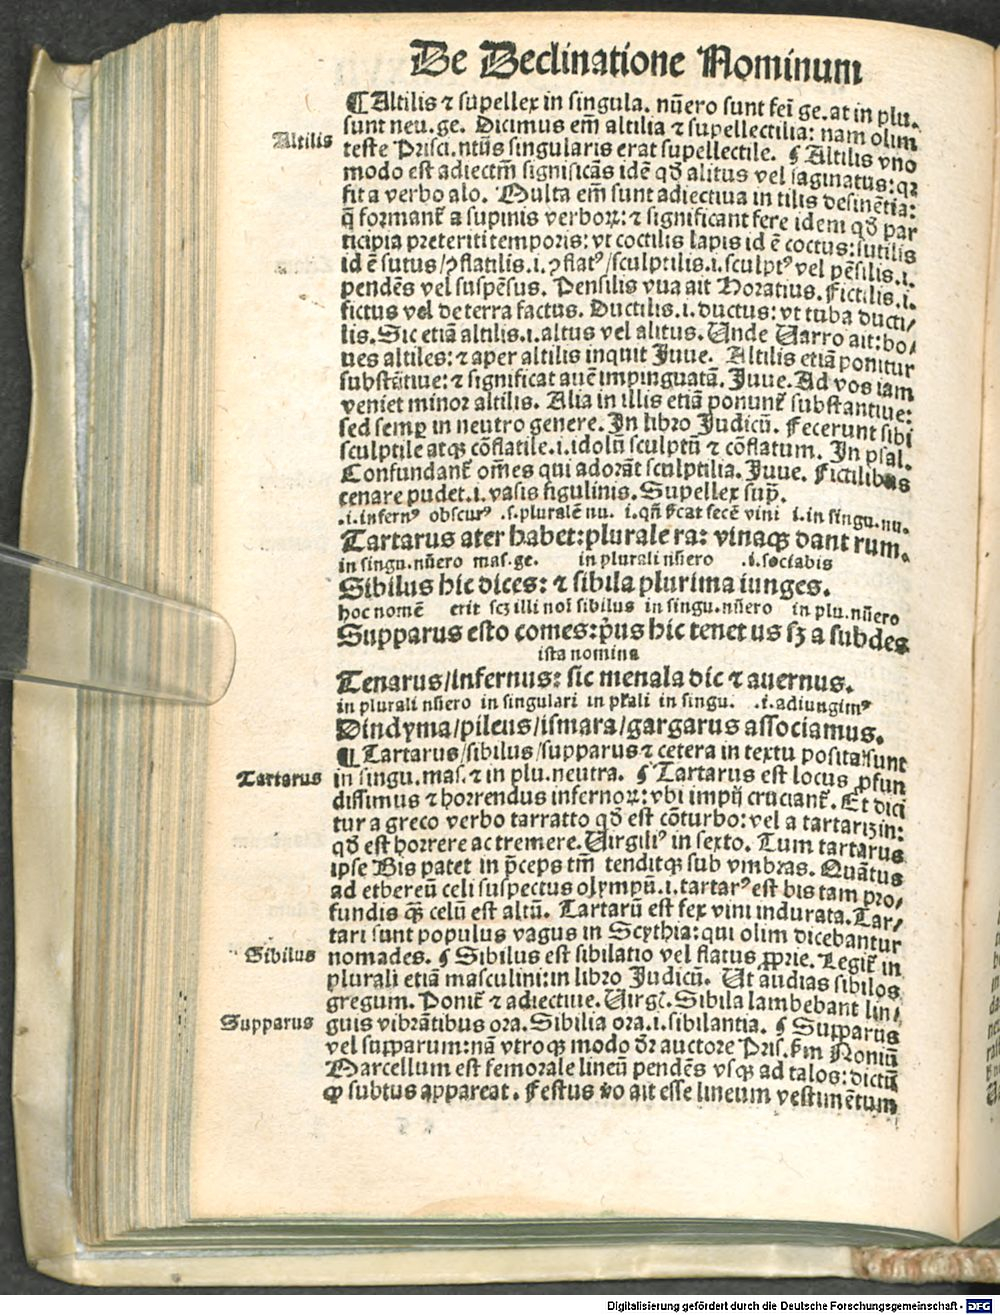 De Declinatione Nominum
¶ Altilis ⁊ supellex in singula. nũero sunt fei ge. at in plu.
sunt neu. ge. Dicimus em̃ altilia ⁊ supellectilia: nam olim
Altilis
teste Prisci. ntũs singularis erat supellectile. ¶ Altilis vno
modo est adiectm̃ significãs idẽ qđ alitus vel saginatus: qꝛ
fit a verbo alo. Multa em̃ sunt adiectiua in tilis desinẽtia:
q̃ formant̃ a supinis verboꝝ: ⁊ significant fere idem qđ par
ticipia preteriti temporis: vt coctilis lapis id ẽ coctus: sutilis
id ẽ sutus/ ꝯflatilis .i. ꝯflatꝰ/ sculptilis .i. sculptꝰ vel pẽsilis .i.
pendẽs vel suspẽsus. Pensilis vua ait Horatius. Fictilis .i.
fictus vel de terra factus. Ductilis .i. ductus: vt tuba ducti/
lis. Sic etiã altilis .i. altus vel alitus. Unde Uarro ait: bo/
ues altiles: ⁊ aper altilis inquit Juue. Altilis etiã ponitur
substãtiue: ⁊ significat auẽ impinguatã. Juue. Ad vos iam
veniet minor altilis. Alia in illis etiã ponunt̃ substantiue:
sed semꝑ in neutro genere. In libro Judicũ. Fecerunt sibi
sculptile atqꝫ cõflatile .i. idolũ sculptũ ⁊ cõflatum. In psal.
Confundant̃ om̃es qui adorãt sculptilia. Juue. Fictilibus
cenare pudet .i. vasis figulinis. Supellex sup̃.
.i. infernꝰ obscurꝰ .s. pluralẽ nu. i. qñ s̃cat fecẽ vini i. in singu. nu.
Tartarus ater habet: plurale ra: vinaqꝫ dant rum.
in singu. nũero mas. ge. in plurali nũero .i. sociabis
Sibilus hic dices: ⁊ sibila plurima iunges.
hoc nomẽ erit scꝫ illi noĩ sibilus in singu. nũero in plu. nũero
Supparus esto comes: p̃us hic tenet us sꝫ a subdes
ista nomina
Tenarus/ infernus: sic menala dic ⁊ auernus.
in plurali nũero in singulari in pl̃ali in singu. .i. adiungimꝰ
Dindyma/ pileus/ ismara/ gargarus associamus.
¶ Tartarus/ sibilus/ supparus ⁊ cetera in textu posita: sunt
Tartarus
in singu. mas. ⁊ in plu. neutra. ¶ Tartarus est locus ꝓfun
dissimus ⁊ horrendus infernoꝝ: vbi impij cruciant̃. Et dici
tur a greco verbo tarratto qđ est cõturbo: vel a tartarizin:
qđ est horrere ac tremere. Uirgiliꝰ in sexto. Tum tartarus
ipse Bis patet in p̃ceps tm̃ tenditqꝫ sub vmbras. Quãtus
ad ethereũ celi suspectus olympũ .i. tartarꝰ est bis tam pro/
fundis qꝫ celũ est altũ. Tartarũ est fex vini indurata. Tar/
tari sunt populus vagus in Scythia: qui olim dicebantur
Sibilus
nomades. ¶ Sibilus est sibilatio vel flatus ꝓprie. Legit̃ in
plurali etiã masculini: in libro Judicũ. Ut audias sibilos
gregum. Ponit̃ ⁊ adiectiue. Uirgꝭ. Sibila lambebant lin/
Supparus
guis vibrãtibus ora. Sibilia ora .i. sibilantia. ¶ Supparus
vel supparum: nã vtroqꝫ modo dr̃ auctore Pris. ẜm Noniũ
Marcellum est femorale lineũ pendẽs vsqꝫ ad talos: dictũ
ꝙ subtus appareat. Festus ṽo ait esse lineum vestimẽtum
Digitalisierung gefördert durch die Deutsche Forschungsgemeinschaft - DFG